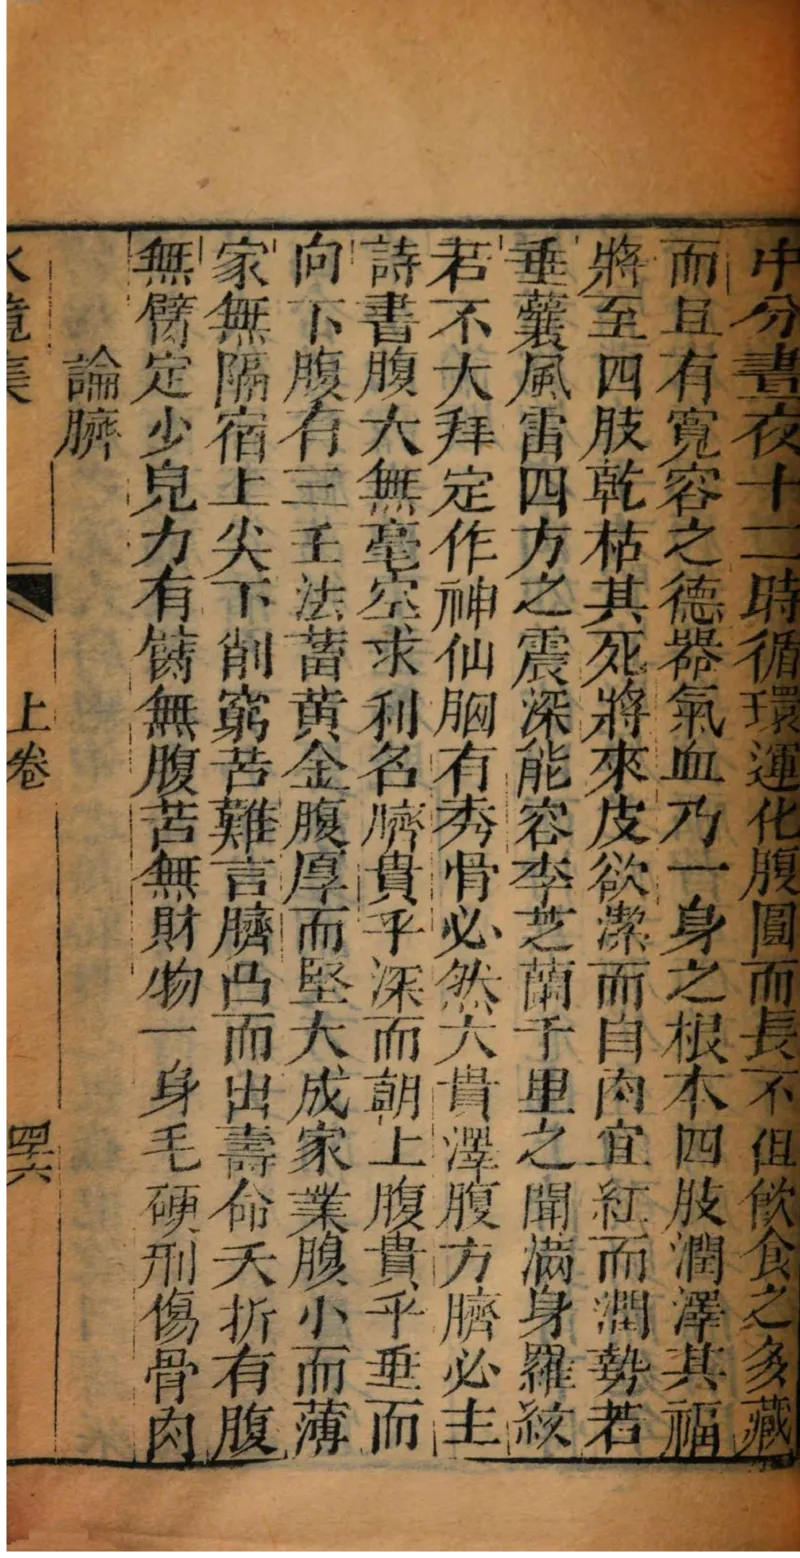 中分晝夜十二時循環運化腹圓而長不但飲食之多藏
而且有寬容之德器氣血乃一身之根本四肢潤澤其福
將至四肢乾枯其死將來皮欲潔而自肉宜紅而潤勢若
垂囊風雷四方之震深能容李芝蘭千里之聞滿身羅紋
若不大拜定作神仙胸有秀骨必然大貴澤腹方臍必主
詩書腹大無毫空求利名臍貴乎深而朝上腹貴乎垂而
向下腹有三壬法蓄黃金腹厚而堅大成家業腹小而薄
家無隔宿上尖下削窮苦難言臍凸而出壽命夭折有腹
無臀定少兒力有臀無腹苦無財物一身毛硬刑傷骨肉
論臍
水鏡集
上卷
四六